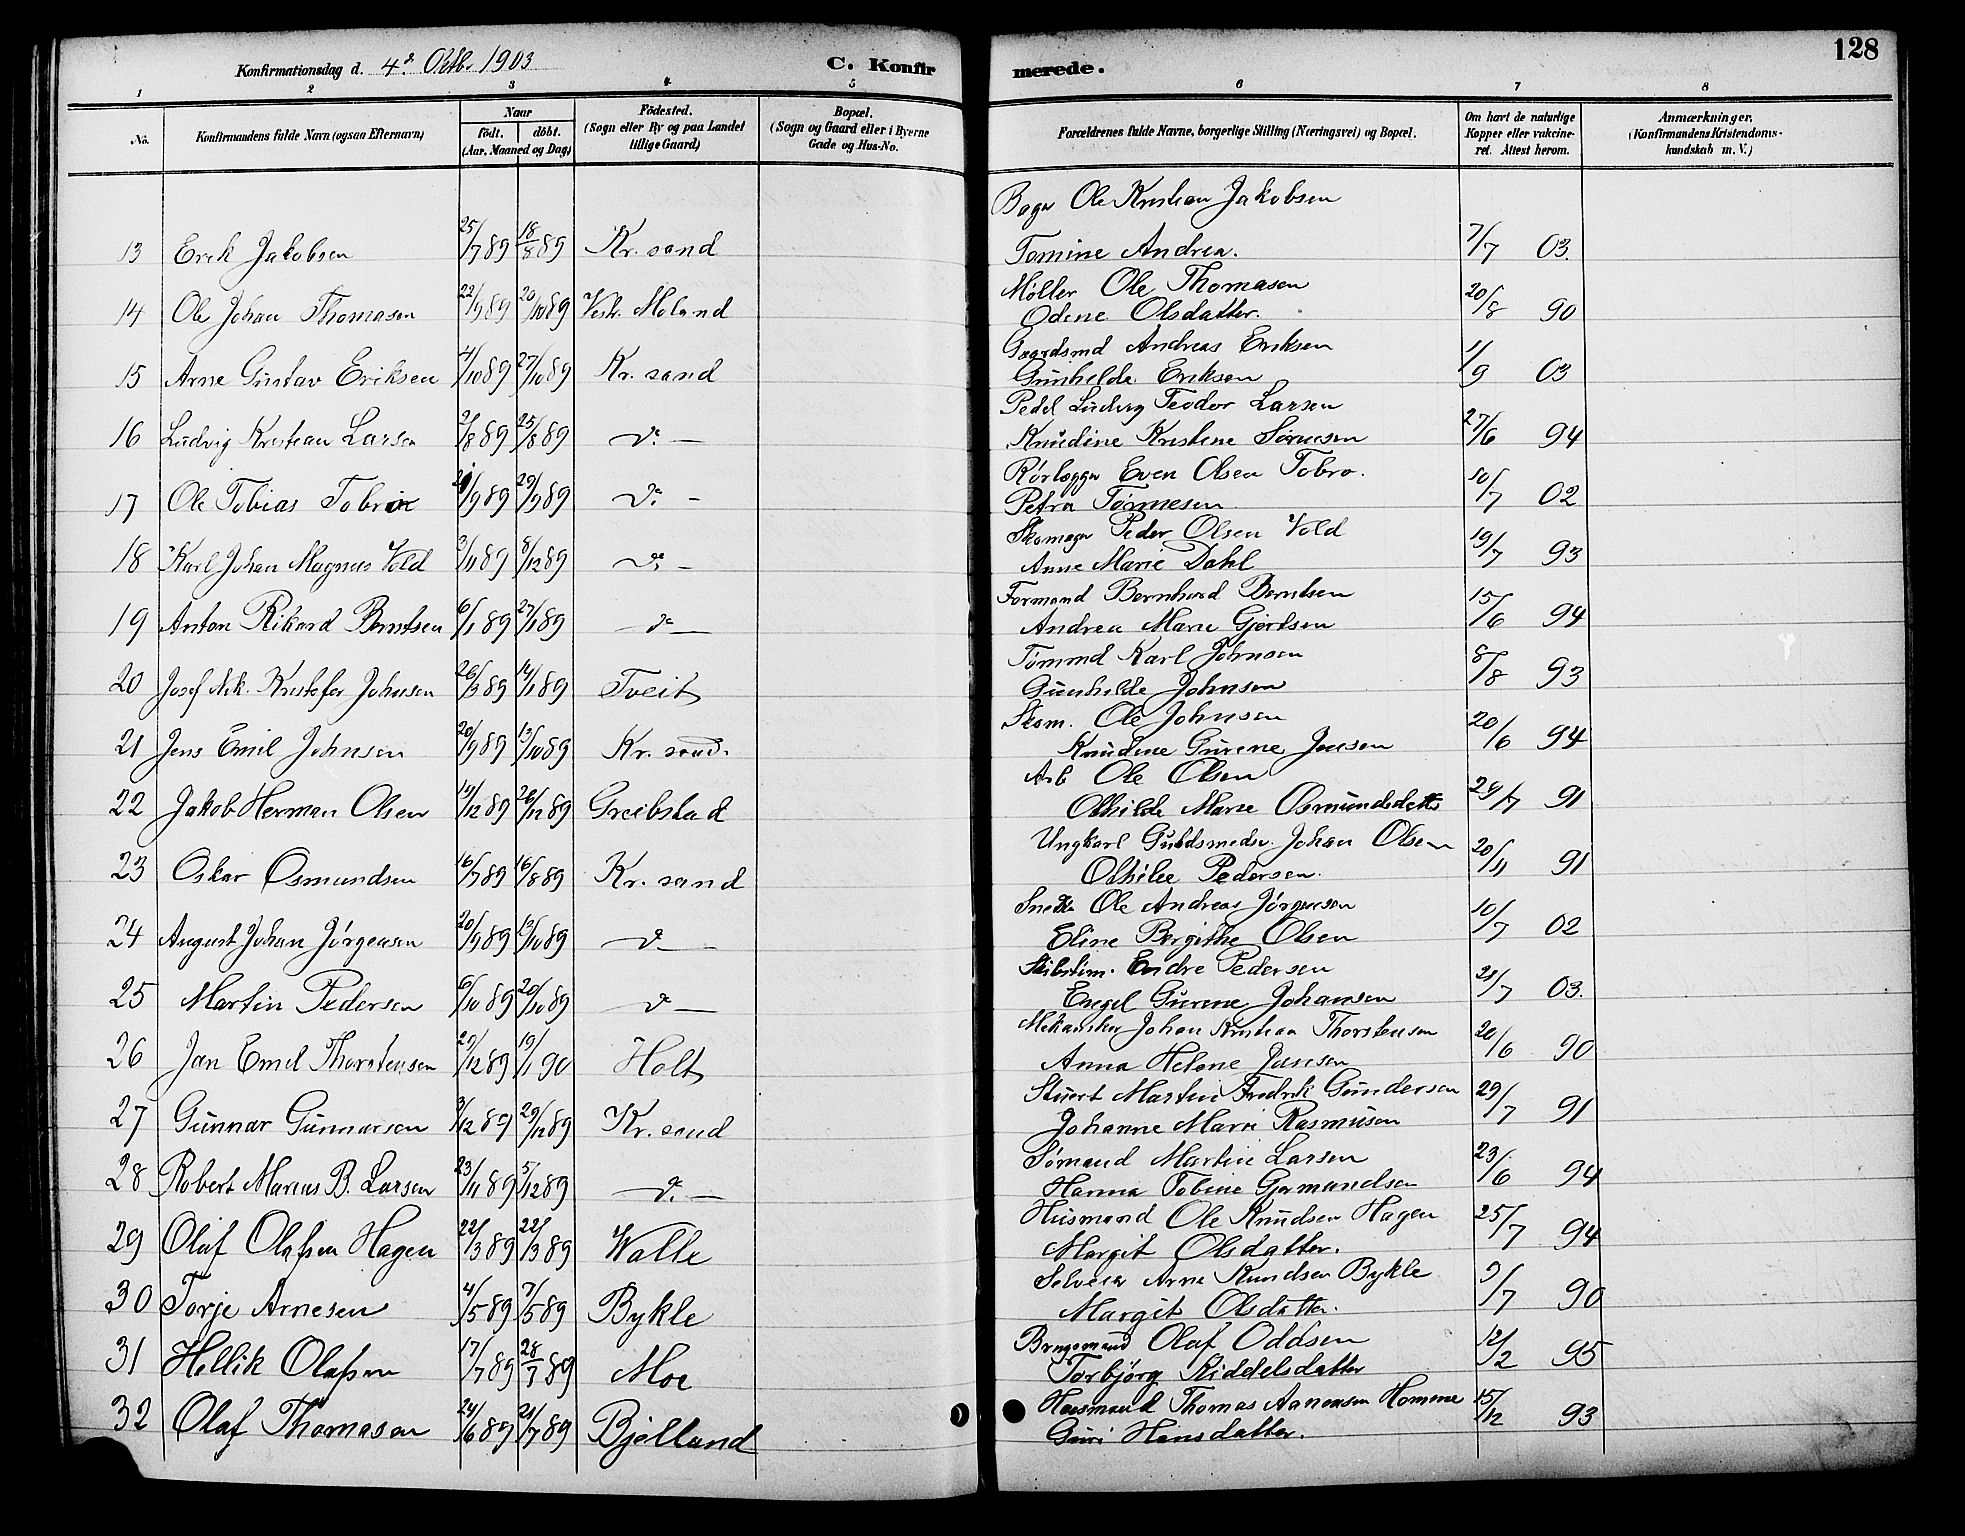 128
Konfirmationsdag d. 4de Oktb. 1903
C. Konfirmerede.
1 2 3 4 5 6 7 8
No. Konfirmandens fulde Navn (ogsaa Efternavn) Naar födt. döbt. (Aar, Maaned og Dag) Födested. (Sogn eller By og paa Landet tillige Gaard) Bopæl. (Sogn og Gaard eller i Byerne Gade og Hus-No. Forældrenes fulde Navne, borgerlige Stilling (Næringsvei) og Bopæl. Om havt de naturlige Kopper eller vakcineret. Attest herom. Anmærkninger. (Konfirmandens Kristendomskundskab m. V.)
Bager Ole Kristian Jakobsen
13 Erik Jakobsen 25/7 89 18/8 89 Kr. sand Tomine Andrea. 7/7 03.
Möller Ole Thomasen
14 Ole Johan Thomasen 22/9 89 20/10 89 Vestr. Moland Odine Olsdatter. 20/8 90
Gaardsmd Andreas Eriksen
15 Arne Gustav Eriksen 4/10 89 27/10 89 Kr. sand Gunhilde Eriksen 11/9 03
Pedel Ludvig Teodor Larsen
16 Ludvig Kristian Larsen 2/8 89 25/8 89 do — Knudine Kristine Sørensen 27/6 94
Rörlægger Even Olsen Tobro.
17 Ole Tobias Tobro 29/9 89 do - Petra Tørnesen 10/7 02
Skomager Peder Olsen Vold
18 Karl Johan Magnus Vold 3/11 89 8/12 89 do — Anne Marie Dahl 19/7 93
Formand Bernhard Berntsen
19 Anton Rikard Berntsen 6/1 89 27/1 89 — do — Andrea Marie Gjertsen 15/6 94
Tømmd Karl Johnsen
20 Josef Nik. Kristofer Johnsen 26/3 89 14/1 89 Tveit Gunhilde Johnsen 8/8 93
Skom. Ole Johnsen
21 Jens Emil Johnsen 20/9 89 13/10 89 Kr. sand. Knudine Gurine Jensen 20/6 94
Arb Ole Olsen
22 Jakob Herman Olsen 19/12 89 26/12 89 Greibstad Othilde Marie Osmundsdatter 29/7 91
Ungkarl Guldsmedsv. Johan Olsen
23 Oskar Osmundsen 16/7 89 16/8 89 Kr. sand Othilie Pedersen. 20/11 91
Snekk Ole Andreas Jörgensen
24 August Johan Jörgensen 20/9 89 13/10 89 — do — Eline Bergithe Olsen 10/7 02
Skibstöm. Endre Pedersen
25 Martin Pedersen 6/10 89 20/10 89 — do — Engel Gurine Johansen 21/7 03.
Mekaniker Johan Kristian Thorstensen
26 Jan Emil Thorstensen 29/12 89 19/1 90 Holt Anna Helene Jensen 20/6 90
Stuert Martin Fredrik Gundersen
27 Gunnar Gunnarsen 3/12 89 29/12 89 Kr. sand Johanne Marie Rasmusen 29/7 91
Sømand Martin Larsen
28 Robert Marius B. Larsen 23/11 89 5/12 89 — do — Hanna Tobine Germundsen 23/6 94
Husmand Ole Knudsen Hagen
29 Olaf Olafsen Hagen 22/3 89 22/3 89 Walle Margit Olsdatter. 25/7 94
Selveier Arne Knudsen Bykle
30 Torje Arnesen 4/5 89 7/5 89 Bykle Margit Olsdatter. 9/7 90
Brugsmand Olaf Oddsen
31 Hellik Olafsen 17/7 89 28/7 89 Moe Torbjörg Kiddelsdatter 12/2 95
Husmand Thomas Aanensen Homme
32 Olaf Thomasen 24/6 89 21/7 89 Bjelland Guri Hansdatter. 15/12 93